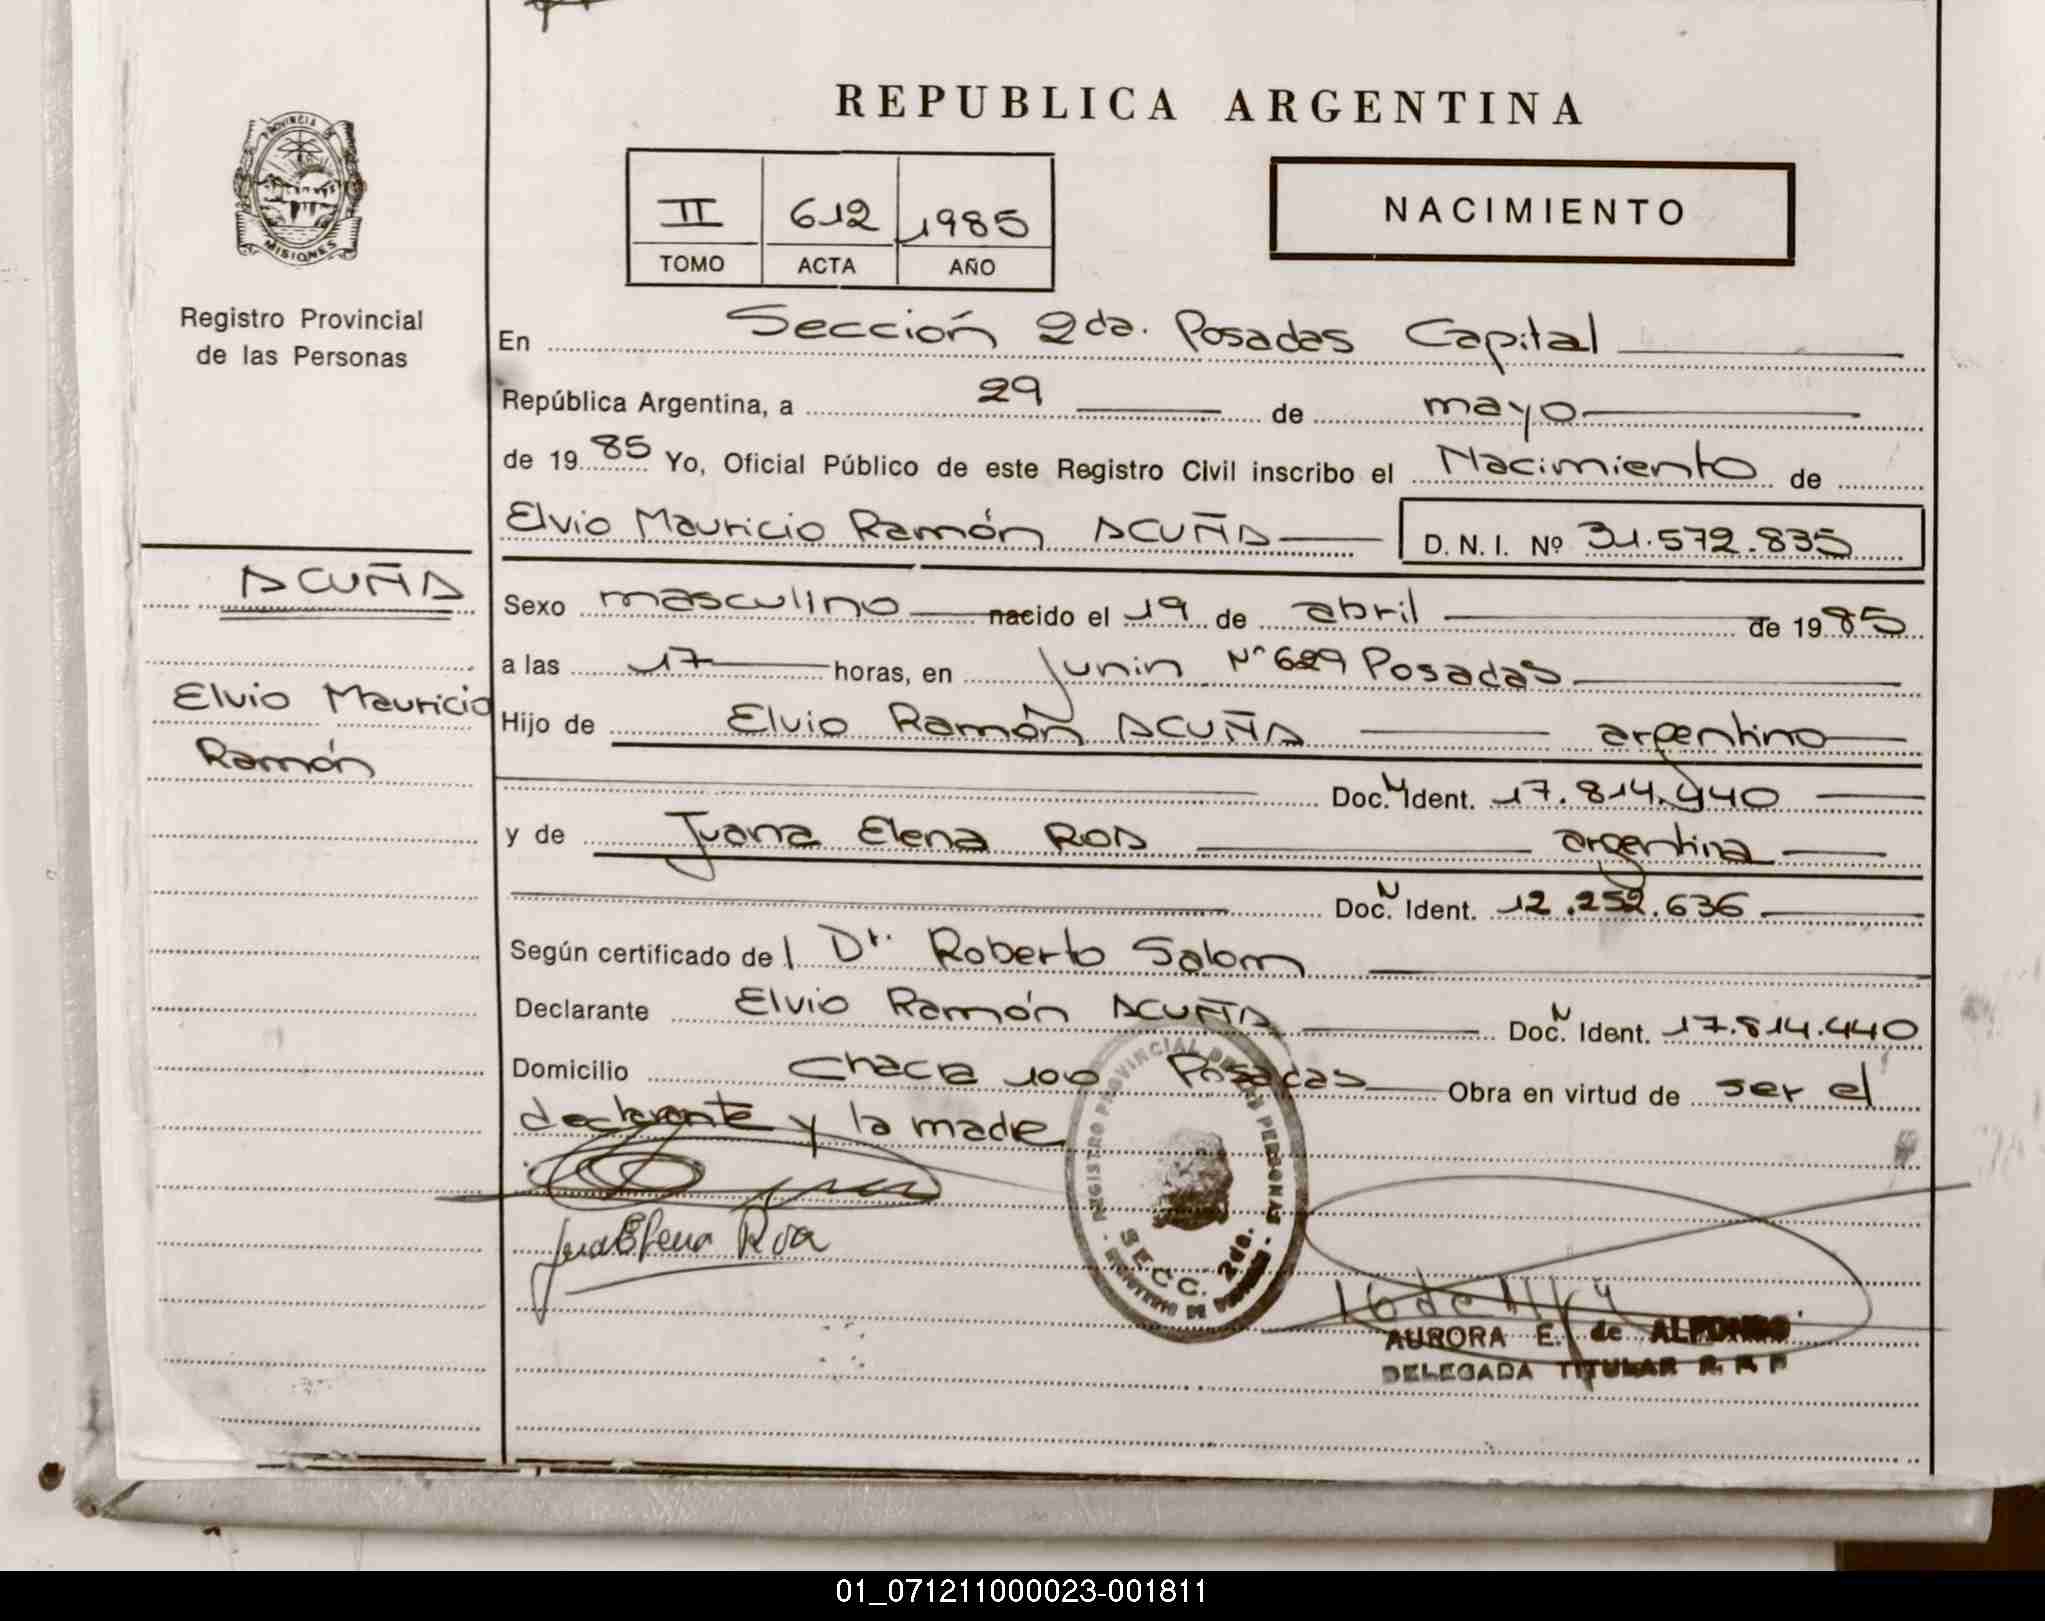 REPUBLICA ARGENTINA
PROVINCIA DE
MISIONES
Registro Provincial
de las Personas
II 612 1985
TOMO ACTA AÑO
NACIMIENTO
En Sección 2da. Posadas Capital
República Argentina, a 29 de mayo
de 1985 Yo, Oficial Público de este Registro Civil inscribo el Nacimiento de
Elvio Mauricio Ramón ACUÑA D.N.I. Nº 31.572.835
ACUÑA
Elvio Mauricio
Ramón
Sexo masculino nacido el 19 de abril de 1985
a las 17 horas, en Junin Nº 629 Posadas
Hijo de Elvio Ramón ACUÑA argentino
Doc. N Ident. 17.814.440
y de Juana Elena ROA argentina
Doc. N Ident. 12.252.636
Según certificado del Dr. Roberto Salom
Declarante Elvio Ramón ACUÑA Doc. N Ident. 17.814.440
Domicilio Chacra 100 Posadas Obra en virtud de ser el
declarante y la madre
Elena Roa
REGISTRO PROVINCIAL DE LAS PERSONAS
SECC. 2da.
AURORA E. de ALFONSO
DELEGADA TITULAR R.P.P
01_071211000023-001811